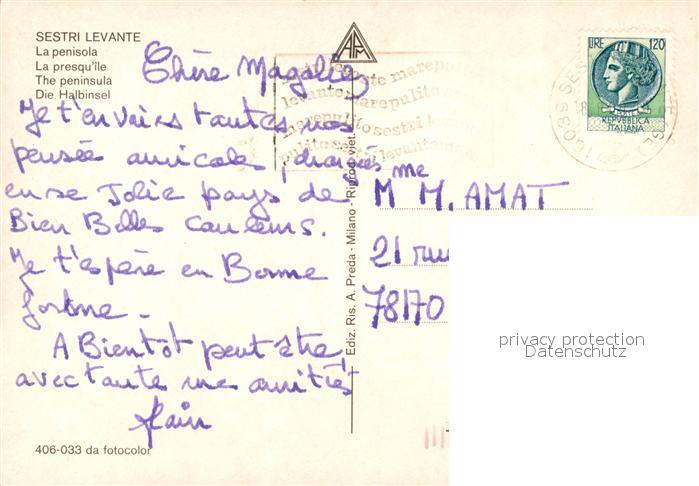 SESTRI LEVANTE
La penisola
La presqu'île
The peninsula
Die Halbinsel
Chère Magalie,
Je t'envoies toutes mes
pensée amicale,
en se Jolie pays de
Bien Belles couleurs.
Je t'espère en Bonne
forme.
A Bientot peut être,
avec toute me amitiés
Alain
406-033 da fotocolor
Ediz. Ris. A. Preda - Milano - Riprod. viet.
LIRE 120
POSTE
REPVBBLICA
ITALIANA
levante marepulito
marepulito sestri
pulito sestri levante
16039 SES
me
M M. AMAT
21 rue
78170
privacy protection
Datenschutz